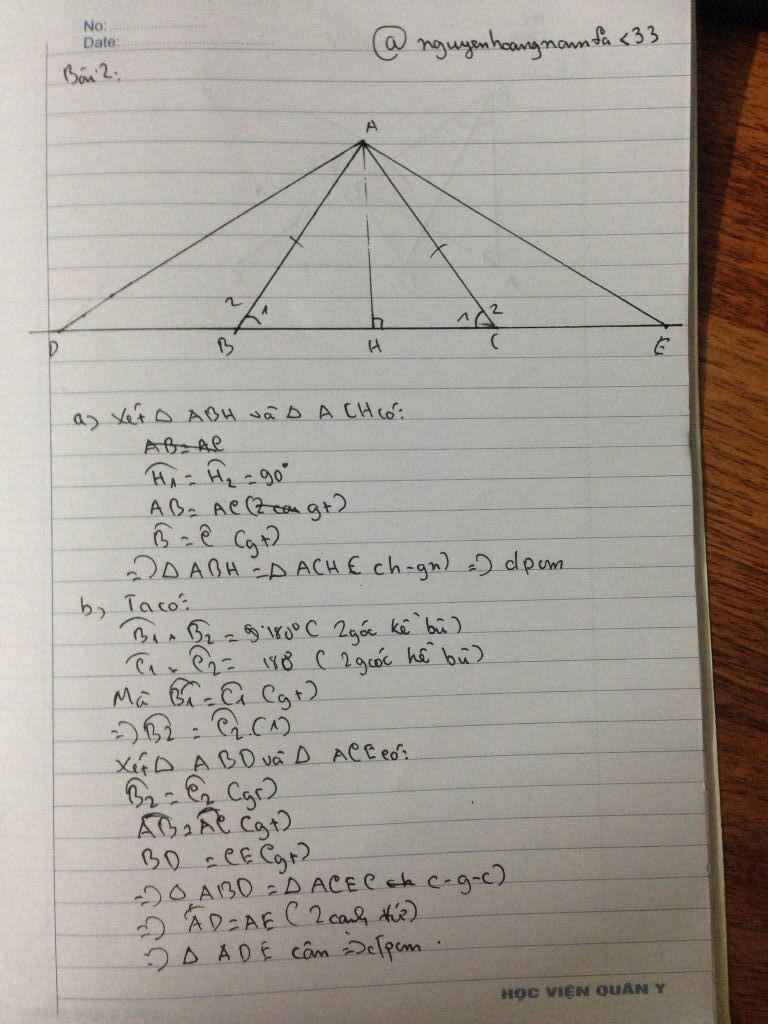 No:
Date:
@ nguyenhoangnam <33
Bài 2:
A
2 1 1 2
D B H C E
a) Xét Δ ABH và Δ ACH có:
AB = AC
Ĥ1 = Ĥ2 = 90°
AB = AC (gt)
B̂ = Ĉ (gt)
=> Δ ABH = Δ ACH (ch-gn) => đpcm
b) Ta có:
B̂1 + B̂2 = 180° ( 2 góc kề bù)
Ĉ1 + Ĉ2 = 180 ( 2 góc kề bù)
Mà B̂1 = Ĉ1 (gt)
=> B̂2 = Ĉ2 (1)
Xét Δ ABD và Δ ACE có:
B̂2 = Ĉ2
AB = AC (gt)
BD = CE (gt)
=> Δ ABD = Δ ACE ( c-g-c)
=> AD = AE ( 2 cạnh)
=> Δ ADE cân => đpcm.
HỌC VIỆN QUÂN Y